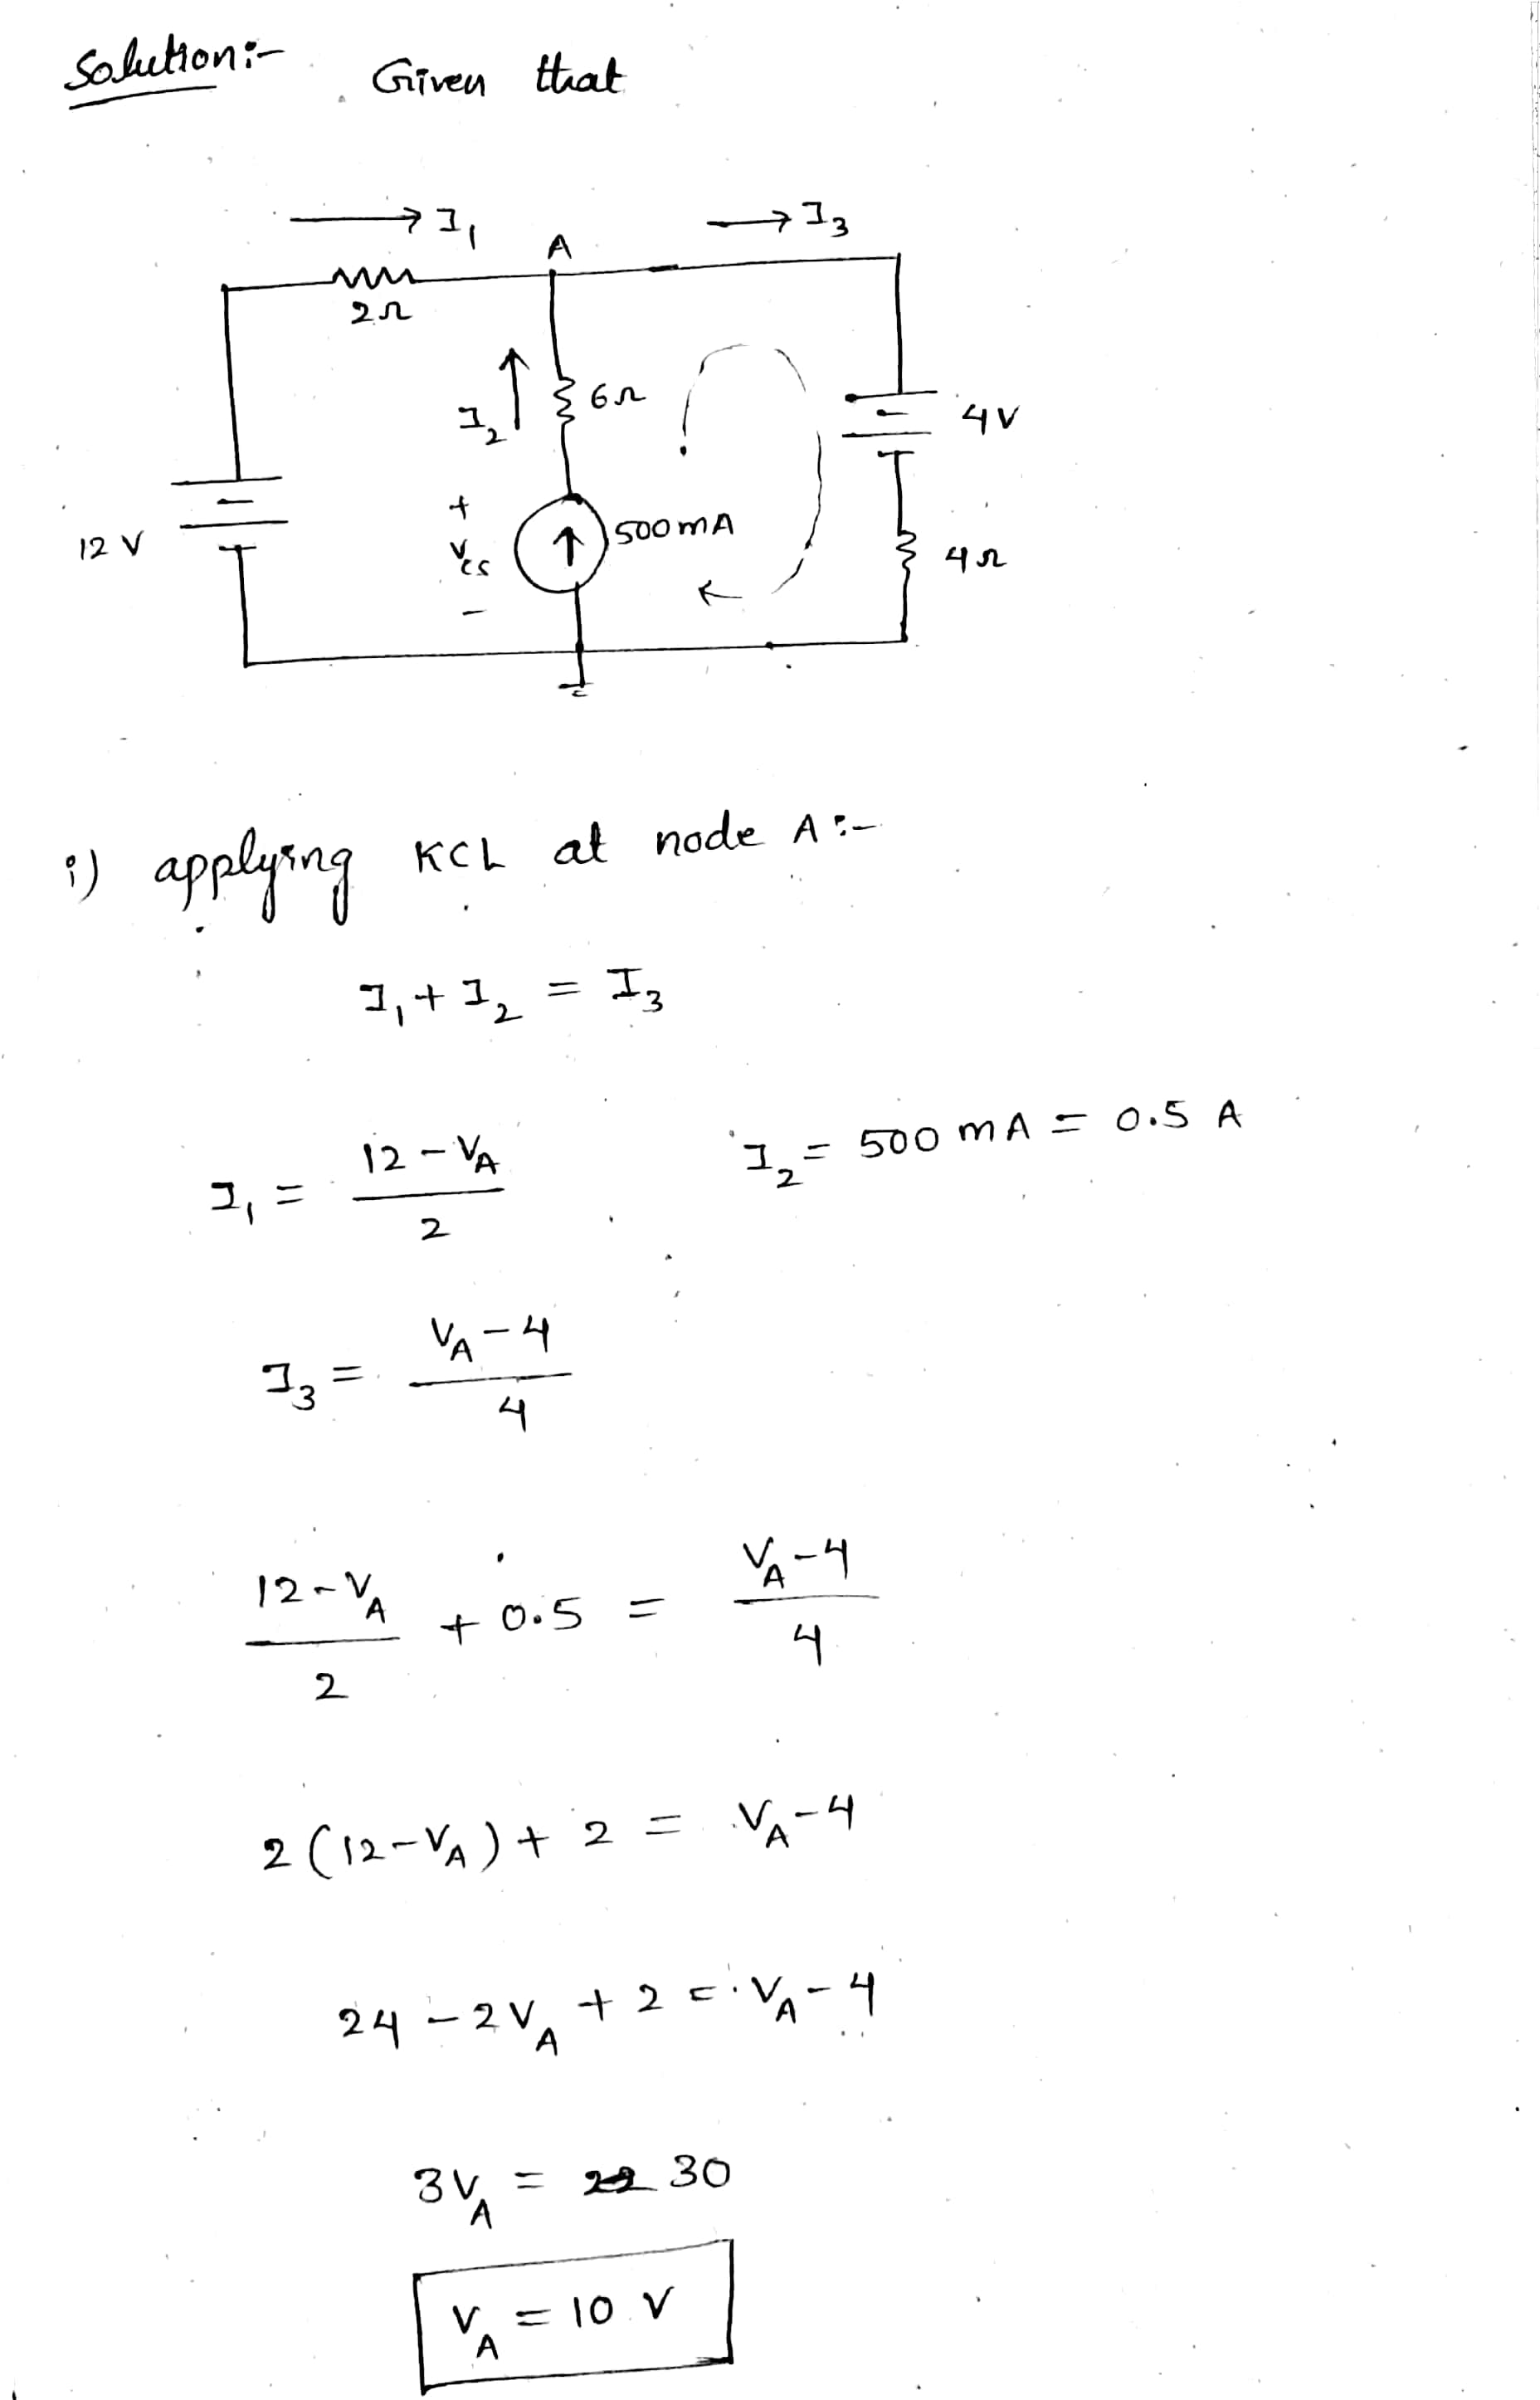 Solution:- Given that
→ I₁
A
→ I₃
2Ω
I₂
6Ω
4V
+
V_cs
-
500mA
12 V
4Ω
i) applying KCL at node A:-
I₁ + I₂ = I₃
I₁ = (12 - V_A)/2
I₂ = 500 mA = 0.5 A
I₃ = (V_A - 4)/4
(12 - V_A)/2 + 0.5 = (V_A - 4)/4
2(12 - V_A) + 2 = V_A - 4
24 - 2V_A + 2 = V_A - 4
3V_A = 30
V_A = 10 V